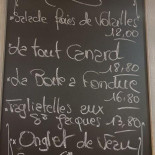 Salade foies de Volailles
12,00
de tout Canard
18,80
de Boite a Fondue
16,80
Tagliatelles aux
St Jacques 13,80
Onglet de Veau